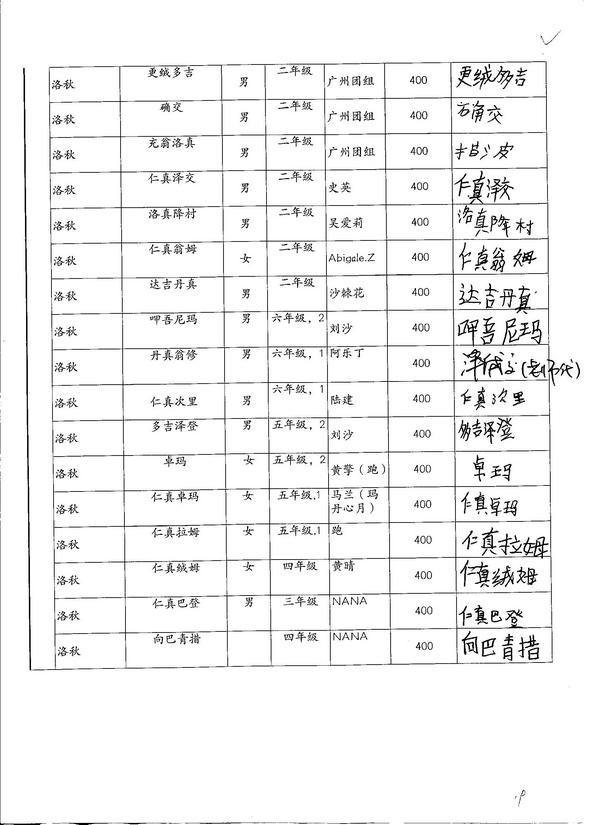 洛秋 更绒多吉 男 二年级 广州团组 400 更绒多吉
洛秋 确交 男 二年级 广州团组 400 石角交
洛秋 充翁洛真 男 二年级 广州团组 400
洛秋 仁真泽交 男 二年级 史英 400 仁真泽交
洛秋 洛真降村 男 二年级 吴爱莉 400 洛真降村
洛秋 仁真翁姆 女 二年级 Abigale.Z 400 仁真翁姆
洛秋 达吉丹真 男 二年级 沙棘花 400 达吉丹真
洛秋 呷吾尼玛 男 六年级，2 刘沙 400 呷吾尼玛
洛秋 丹真翁修 男 六年级，1 阿乐丁 400
洛秋 仁真次里 男 六年级，1 陆建 400 仁真次里
洛秋 多吉泽登 男 五年级，2 刘沙 400 多吉泽登
洛秋 卓玛 女 五年级，2 黄擎（跑） 400 卓玛
洛秋 仁真卓玛 女 五年级,1 马兰（玛
丹心月） 400 仁真卓玛
洛秋 仁真拉姆 女 五年级,1 跑 400 仁真拉姆
洛秋 仁真绒姆 女 四年级 黄晴 400 仁真绒姆
洛秋 仁真巴登 男 三年级 NANA 400 仁真巴登
洛秋 向巴青措 四年级 NANA 400 向巴青措